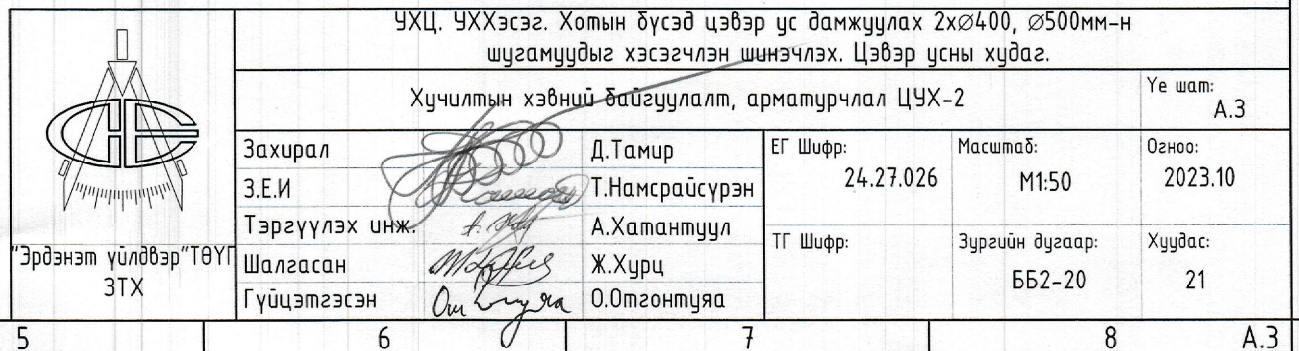 УХЦ. УХХэсэг. Хотын бүсэд цэвэр ус дамжуулах 2х∅400, ∅500мм-н
шугамуудыг хэсэгчлэн шинэчлэх. Цэвэр усны худаг.
Хучилтын хэвний байгуулалт, арматурчлал ЦУХ-2
Үе шат:
А.З
"Эрдэнэт үйлдвэр"ТӨҮГ
ЗТХ
Захирал Д.Тамир
З.Е.И Т.Намсрайсүрэн
Тэргүүлэх инж. А.Хатантуул
Шалгасан Ж.Хурц
Гүйцэтгэсэн Отгонтуяа О.Отгонтуяа
ЕГ Шифр:
24.27.026
Масштаб:
М1:50
Огноо:
2023.10
ТГ Шифр:
Зургийн дугаар:
ББ2-20
Хуудас:
21
5 6 7 8 А.З